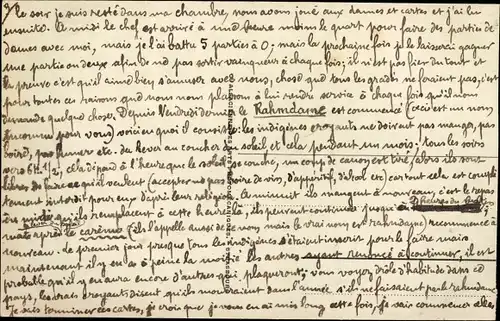 le soir je suis resté dans ma chambre, nous avons joué aux dames et cartes et j'ai lu
ensuite. A midi le chef est arrivé à une heure moins le quart pour faire des parties de
dames avec moi, mais je l'ai battu 5 parties à 0; mais la prochaine fois je le laisserai gagner
une partie ou deux afin de ne pas sortir vainqueur à chaque fois; il n'est pas fier du tout et
la preuve c'est qu'il aime bien s'amuser avec nous, chose que tous les gradés ne feraient pas, c'est
pour toutes ces raisons que nous nous plaisons à lui rendre service à chaque fois qu'il nous
demande quelque chose. Depuis Vendredi dernier le Rahmdame est commencé (ceci est un nom
inconnu pour vous) voici en quoi il consiste: les indigènes croyants ne doivent pas manger, pas
boire, pas fumer etc. du lever au coucher du soleil et cela pendant un mois; tous les soirs
vers 6H 1/2, cela dépend à l'heure que le soleil se couche, un coup de canon est tiré alors ils sont
libres de faire ce qu'ils veulent (excepter ne pas boire de vin, d'apéritif, etc) car tout cela est complè-
tement interdit pour eux d'après leur religion. A minuit ils mangent à nouveau, c'est le repas
de midi qu'ils remplacent à cette heure là, ils peuvent continuer jusqu'à
mais après le carême (ils l'appelle aussi de ce nom mais le vrai nom est rahmdame) recommence à
nouveau. Le premier jour presque tous les indigènes s'étaient inscrit pour le faire mais
maintenant il y en a à peine la moitié, les autres ayant renoncé à continuer, il est
probable qu'il y en aura encore d'autres qui plaqueront; vous voyez drôle d'habitude dans ce
pays, les vrais croyants disent qu'ils mourraient dans l'année s'ils ne faisaient pas le rahmdame
Je vais terminer ces cartes, je crois que je vous en ai mis long cette fois, je vais commencer